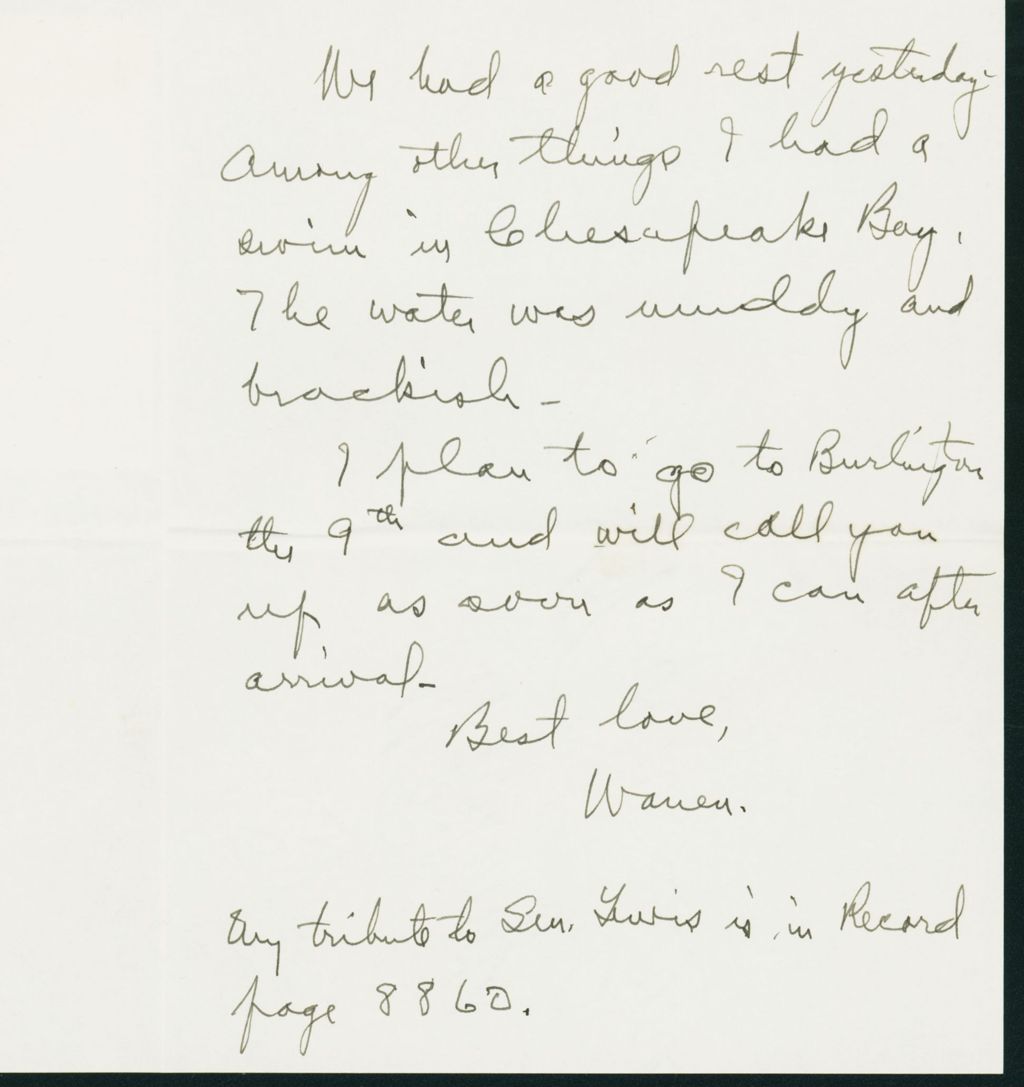 We had a good rest yesterday-
Among other things I had a
swim in Chesapeake Bay.
The water was muddy and
brackish -
I plan to go to Burlington
the 9th and will call you
up as soon as I can after
arrival-
Best love,
Warren.
My tribute to Sen. Lewis is in Record
page 8860.